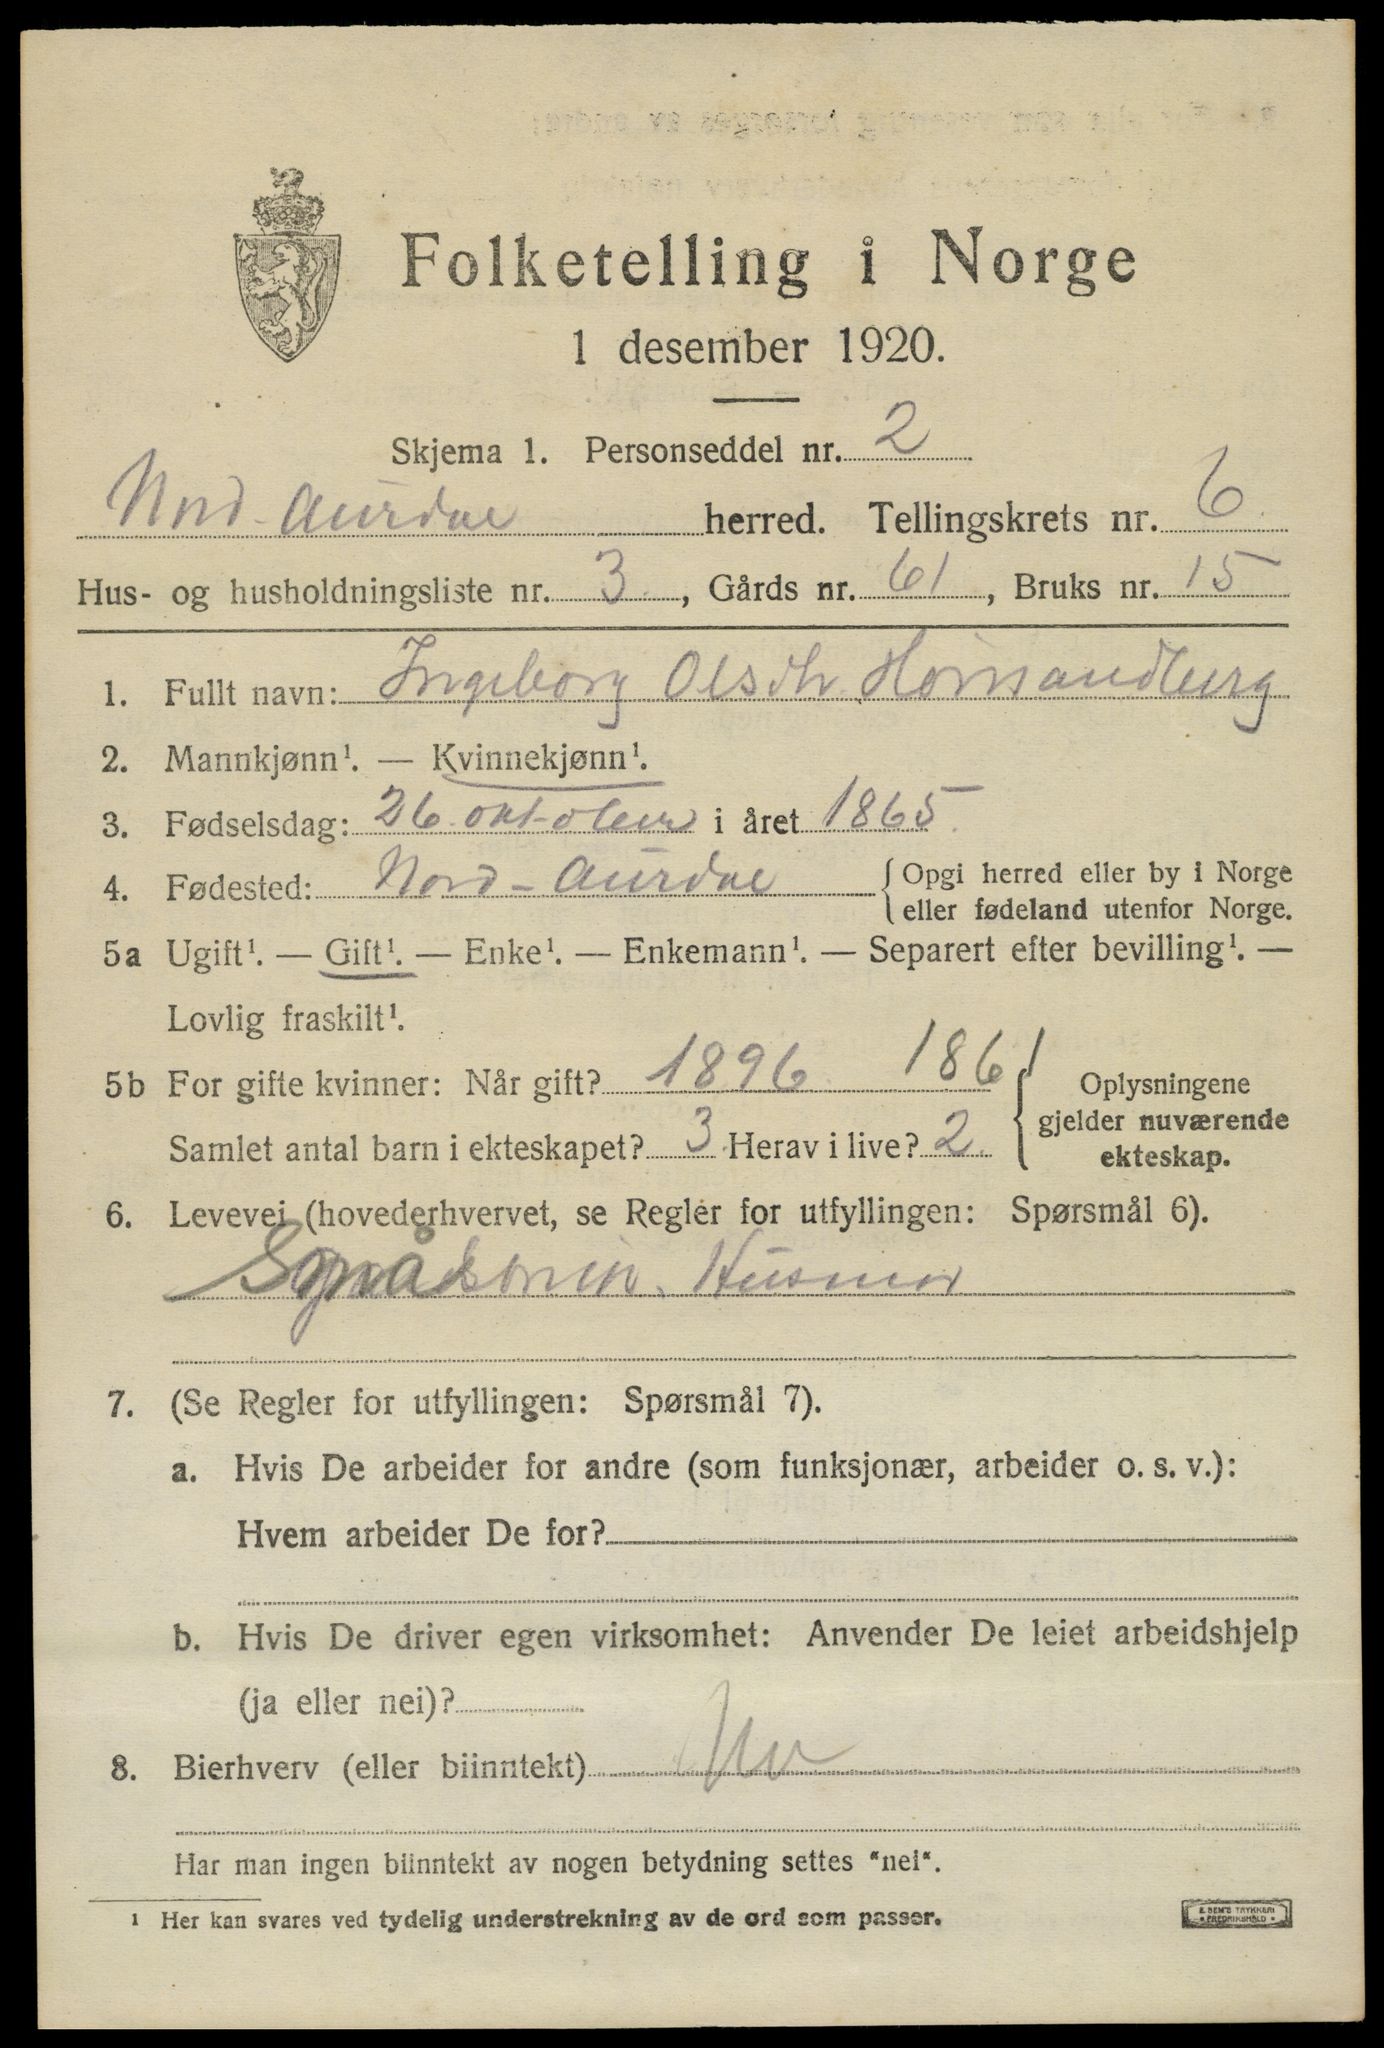 Folketelling i Norge
1 desember 1920.
Skjema 1. Personseddel nr. 2
Nord-Aurdal herred. Tellingskrets nr. 6
Hus- og husholdningsliste nr. 3, Gårds nr. 61, Bruks nr. 15
1. Fullt navn: Ingeborg Olsdtr.
2. Mannkjønn¹. — Kvinnekjønn¹.
3. Fødselsdag: 26 oktober i året 1865.
4. Fødested: Nord-Aurdal {Opgi herred eller by i Norge
eller fødeland utenfor Norge.
5a Ugift¹. — Gift¹. — Enke¹. — Enkemann¹. — Separert efter bevilling¹. —
Lovlig fraskilt¹.
5b For gifte kvinner: Når gift? 1896 1861
Samlet antal barn i ekteskapet? 3 Herav i live? 2
Oplysningene
gjelder nuværende
ekteskap.
6. Levevei (hovederhvervet, se Regler for utfyllingen: Spørsmål 6).
Husmor
7. (Se Regler for utfyllingen: Spørsmål 7).
a. Hvis De arbeider for andre (som funksjonær, arbeider o. s. v.):
Hvem arbeider De for?
b. Hvis De driver egen virksomhet: Anvender De leiet arbeidshjelp
(ja eller nei)?
8. Bierhverv (eller biinntekt)
Har man ingen biinntekt av nogen betydning settes "nei".
1 Her kan svares ved tydelig understrekning av de ord som passer.
E. SEM'S TRYKKERI
FREDRIKSHALD